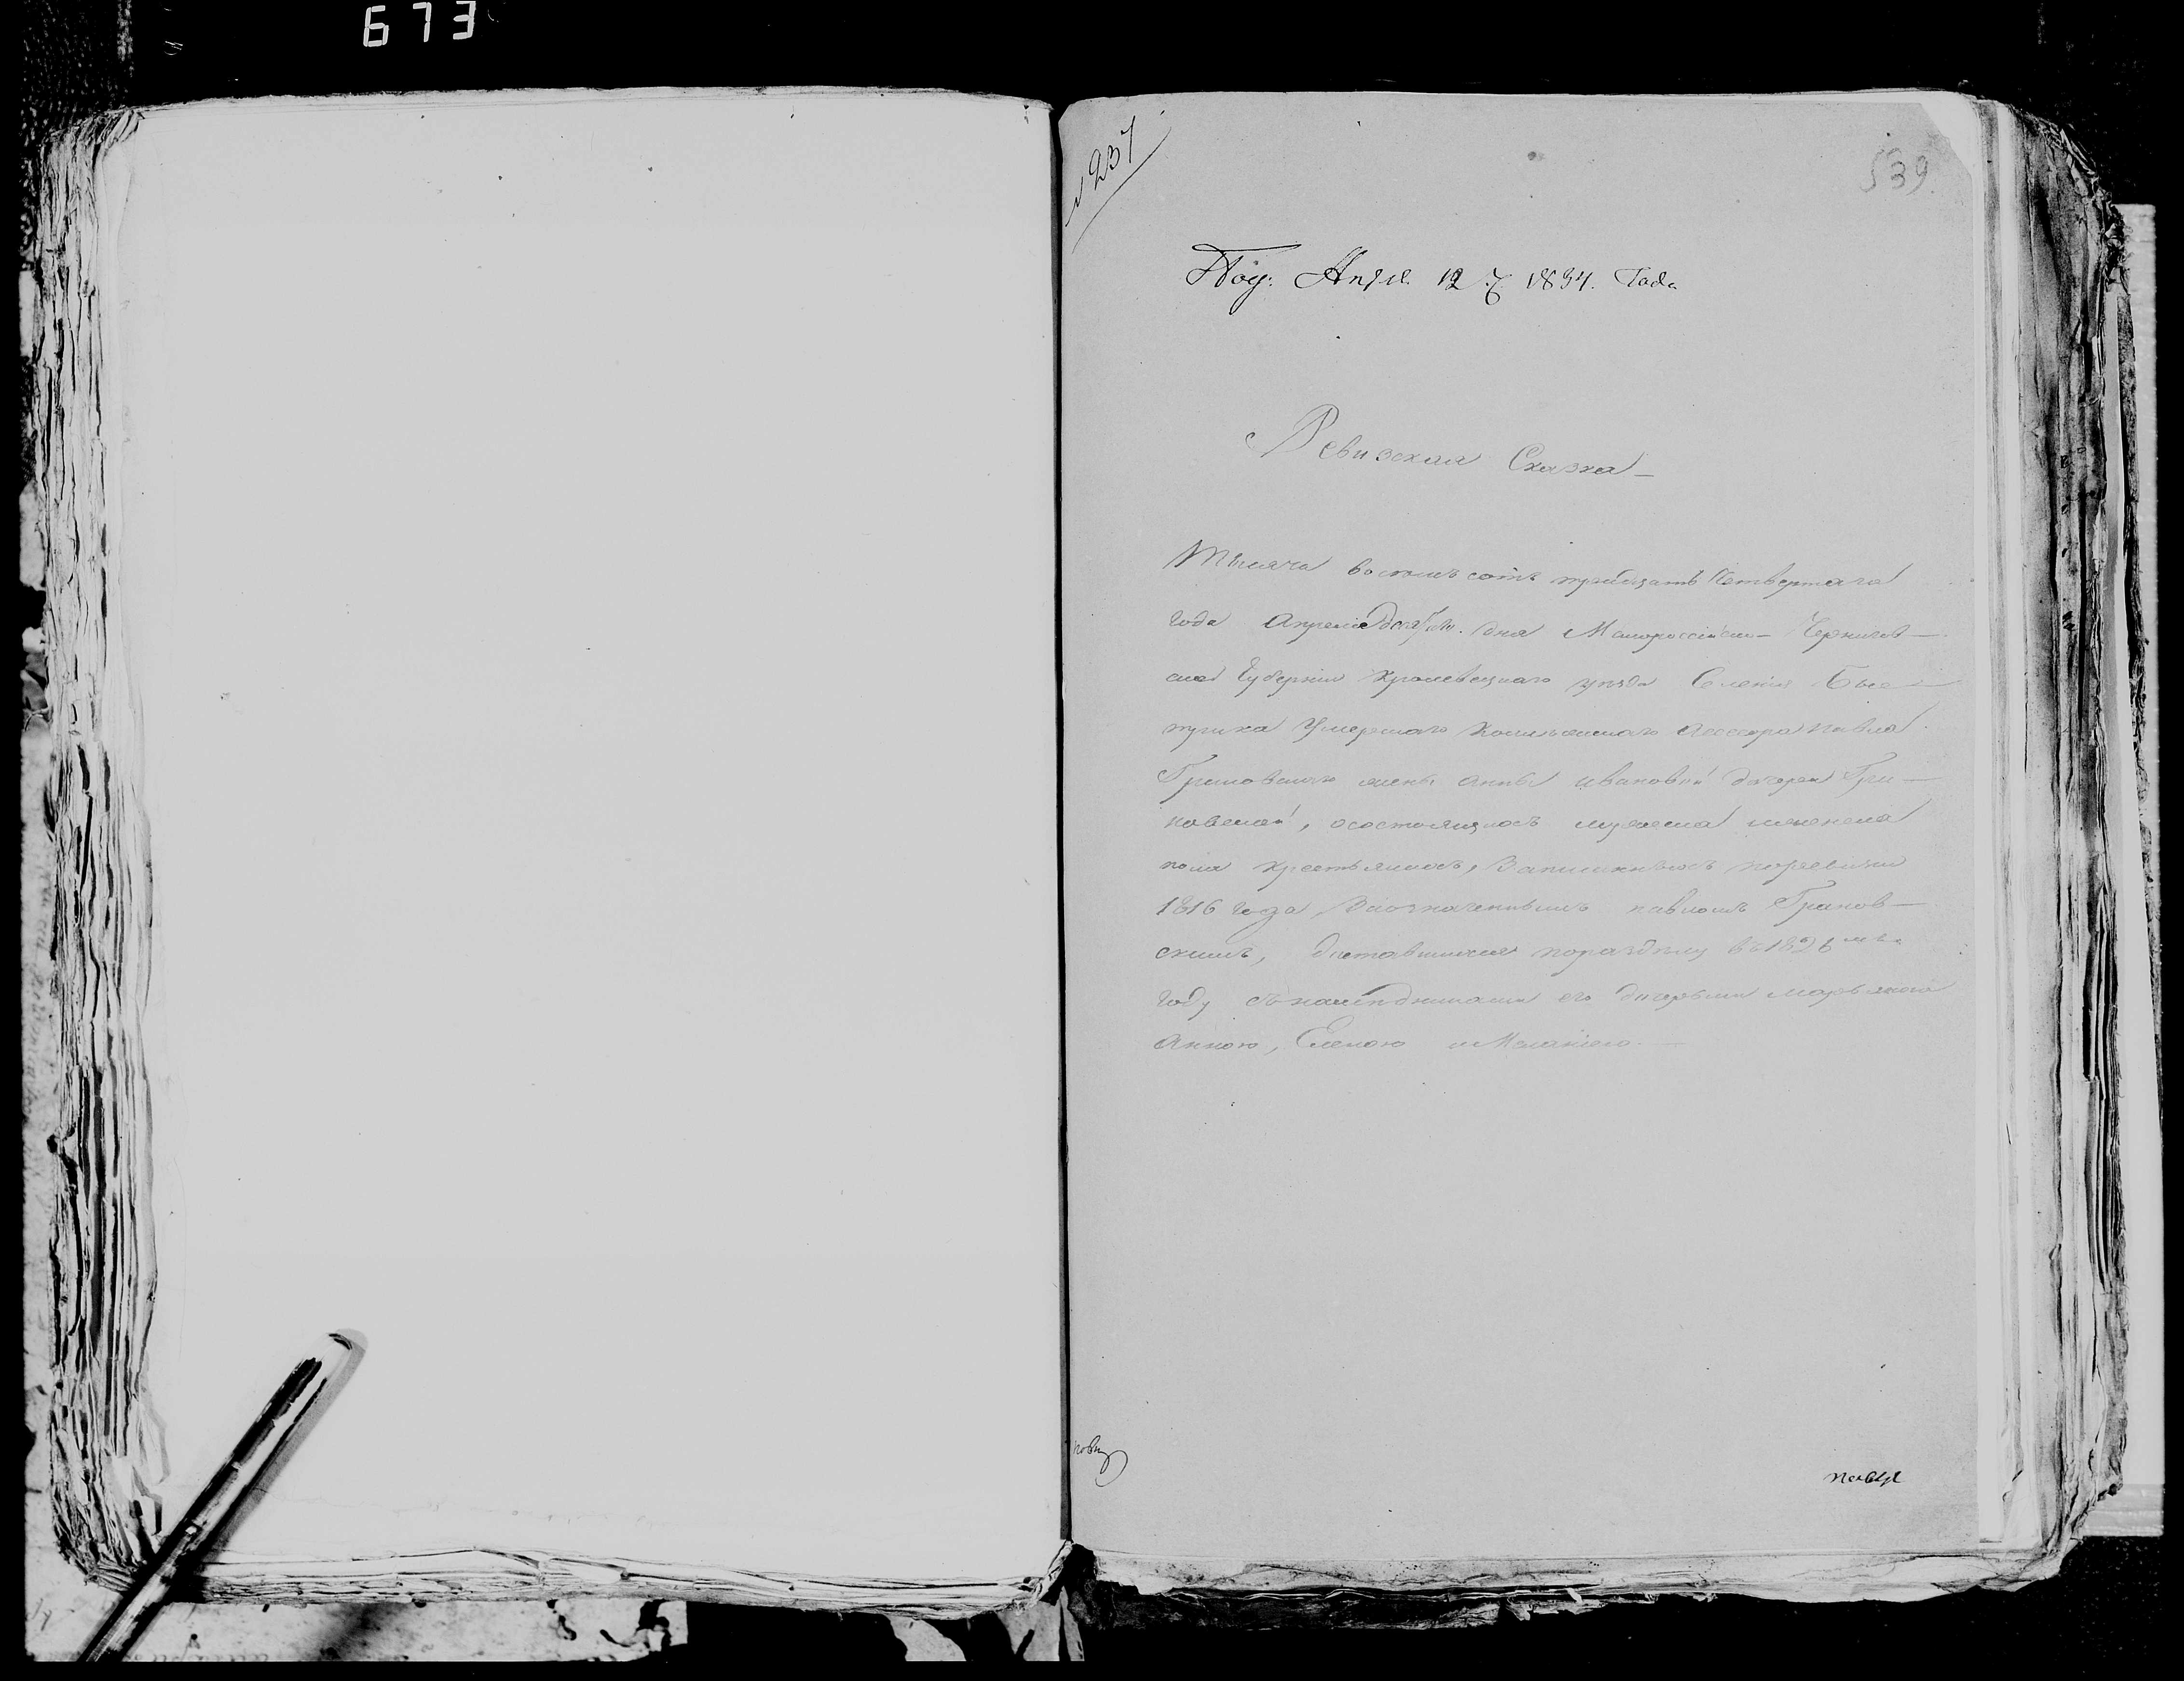 673
№ 237
539.
Под: Апрл. 12 1834. Года
Ревизская Сказка —
Тысяча восемь сотъ тридцать Четвертаго
года Апреля дня Малороссійско — Чернигов —
ской Губерніи Кролевецкого уезда Селенія Быс —
трика Умершаго Колежскаго Ассесора Павла
Грановскаго жены Анны Ивановой дочерей Гра —
новской, осостоящихъ мужеска иженска
пола крестьянахъ, Записанныхъ поревизіи
1816 года Заозначеннымъ павломъ Гранов —
скимъ, доставшихся пораздѣлу въ 1826 мъ
году его дочерьми
Анною, Еленою и Меланіею. —